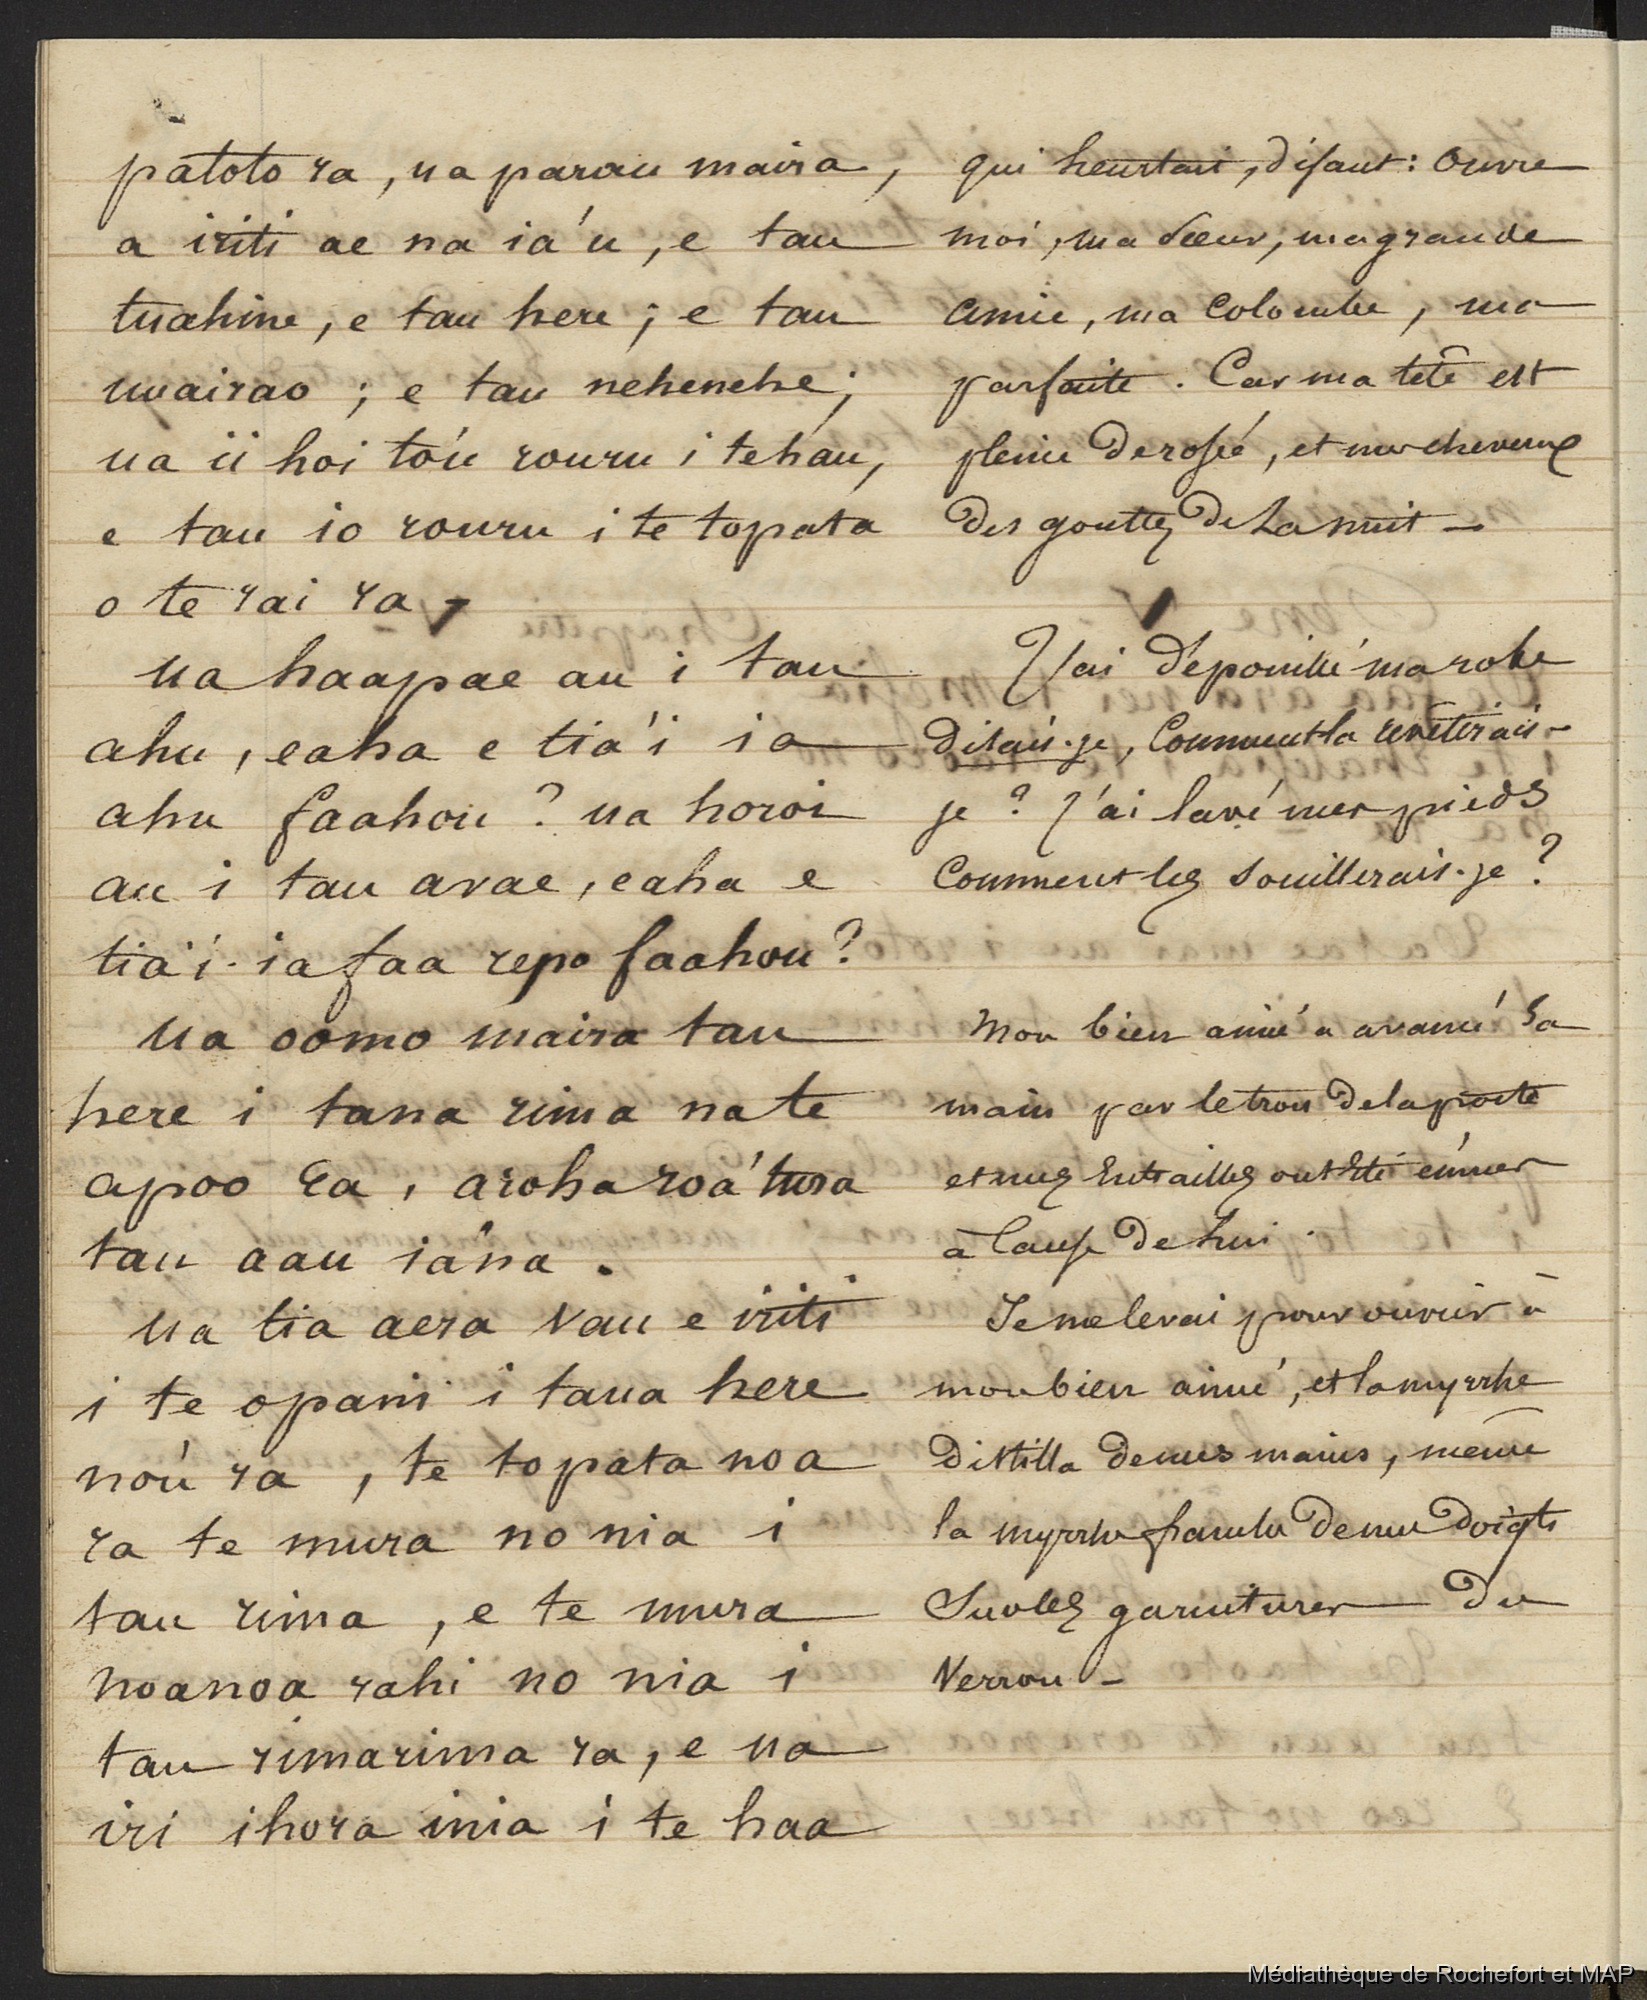 patoto ra, ua parau maira,
a iriti ae na ia'u, e tau
tuahine, e tau here; e tau
uuairao; e tau nehenehe;
ua ii hoi tó'u rouru i tehau,
e tau io rouru i te topata
o te rai ra -
ua haapae au i tau
ahu, eaha e tia'i ia
ahu faahou? ua horoi
au i tau avae, eaha e
tia'i ia faa repo faahou?
ua oomo maira tau
here i tana rima na te
apoo ra, aroha roa'tura
tau aau iána.
ua tia aera vau e iriti
i te opani i taua here
no'ú ra, te topata noa
ra te mura no nia i
tau rima, e te mura
noanoa rahi no nia i
tau rimarima ra, e ua
iri ihora inia i te haa
qui heurtait, disant: Ouvre
moi, ma sœur, ma grande
amie, ma Colombe, ma
parfaite. Car ma tête est
pleine de rosée, et mes cheveux
des gouttes de La nuit -
J'ai dépouillé ma robe
disais-je, Comment la revêterais-
je? J'ai lavé mes pieds
Comment les souillerais-je?
Mon bien aimé a avancé sa
main par le trou de la porte
et mes Entrailles ont Eté émues
à Cause de Lui.
Je me levai pour ouvrir à
mon bien aimé, et la myrrhe
Distilla de mes mains, même
la myrrhe franche de mes Doigts
Sur les garnitures Du
Verrou -
Médiathèque de Rochefort et MAP